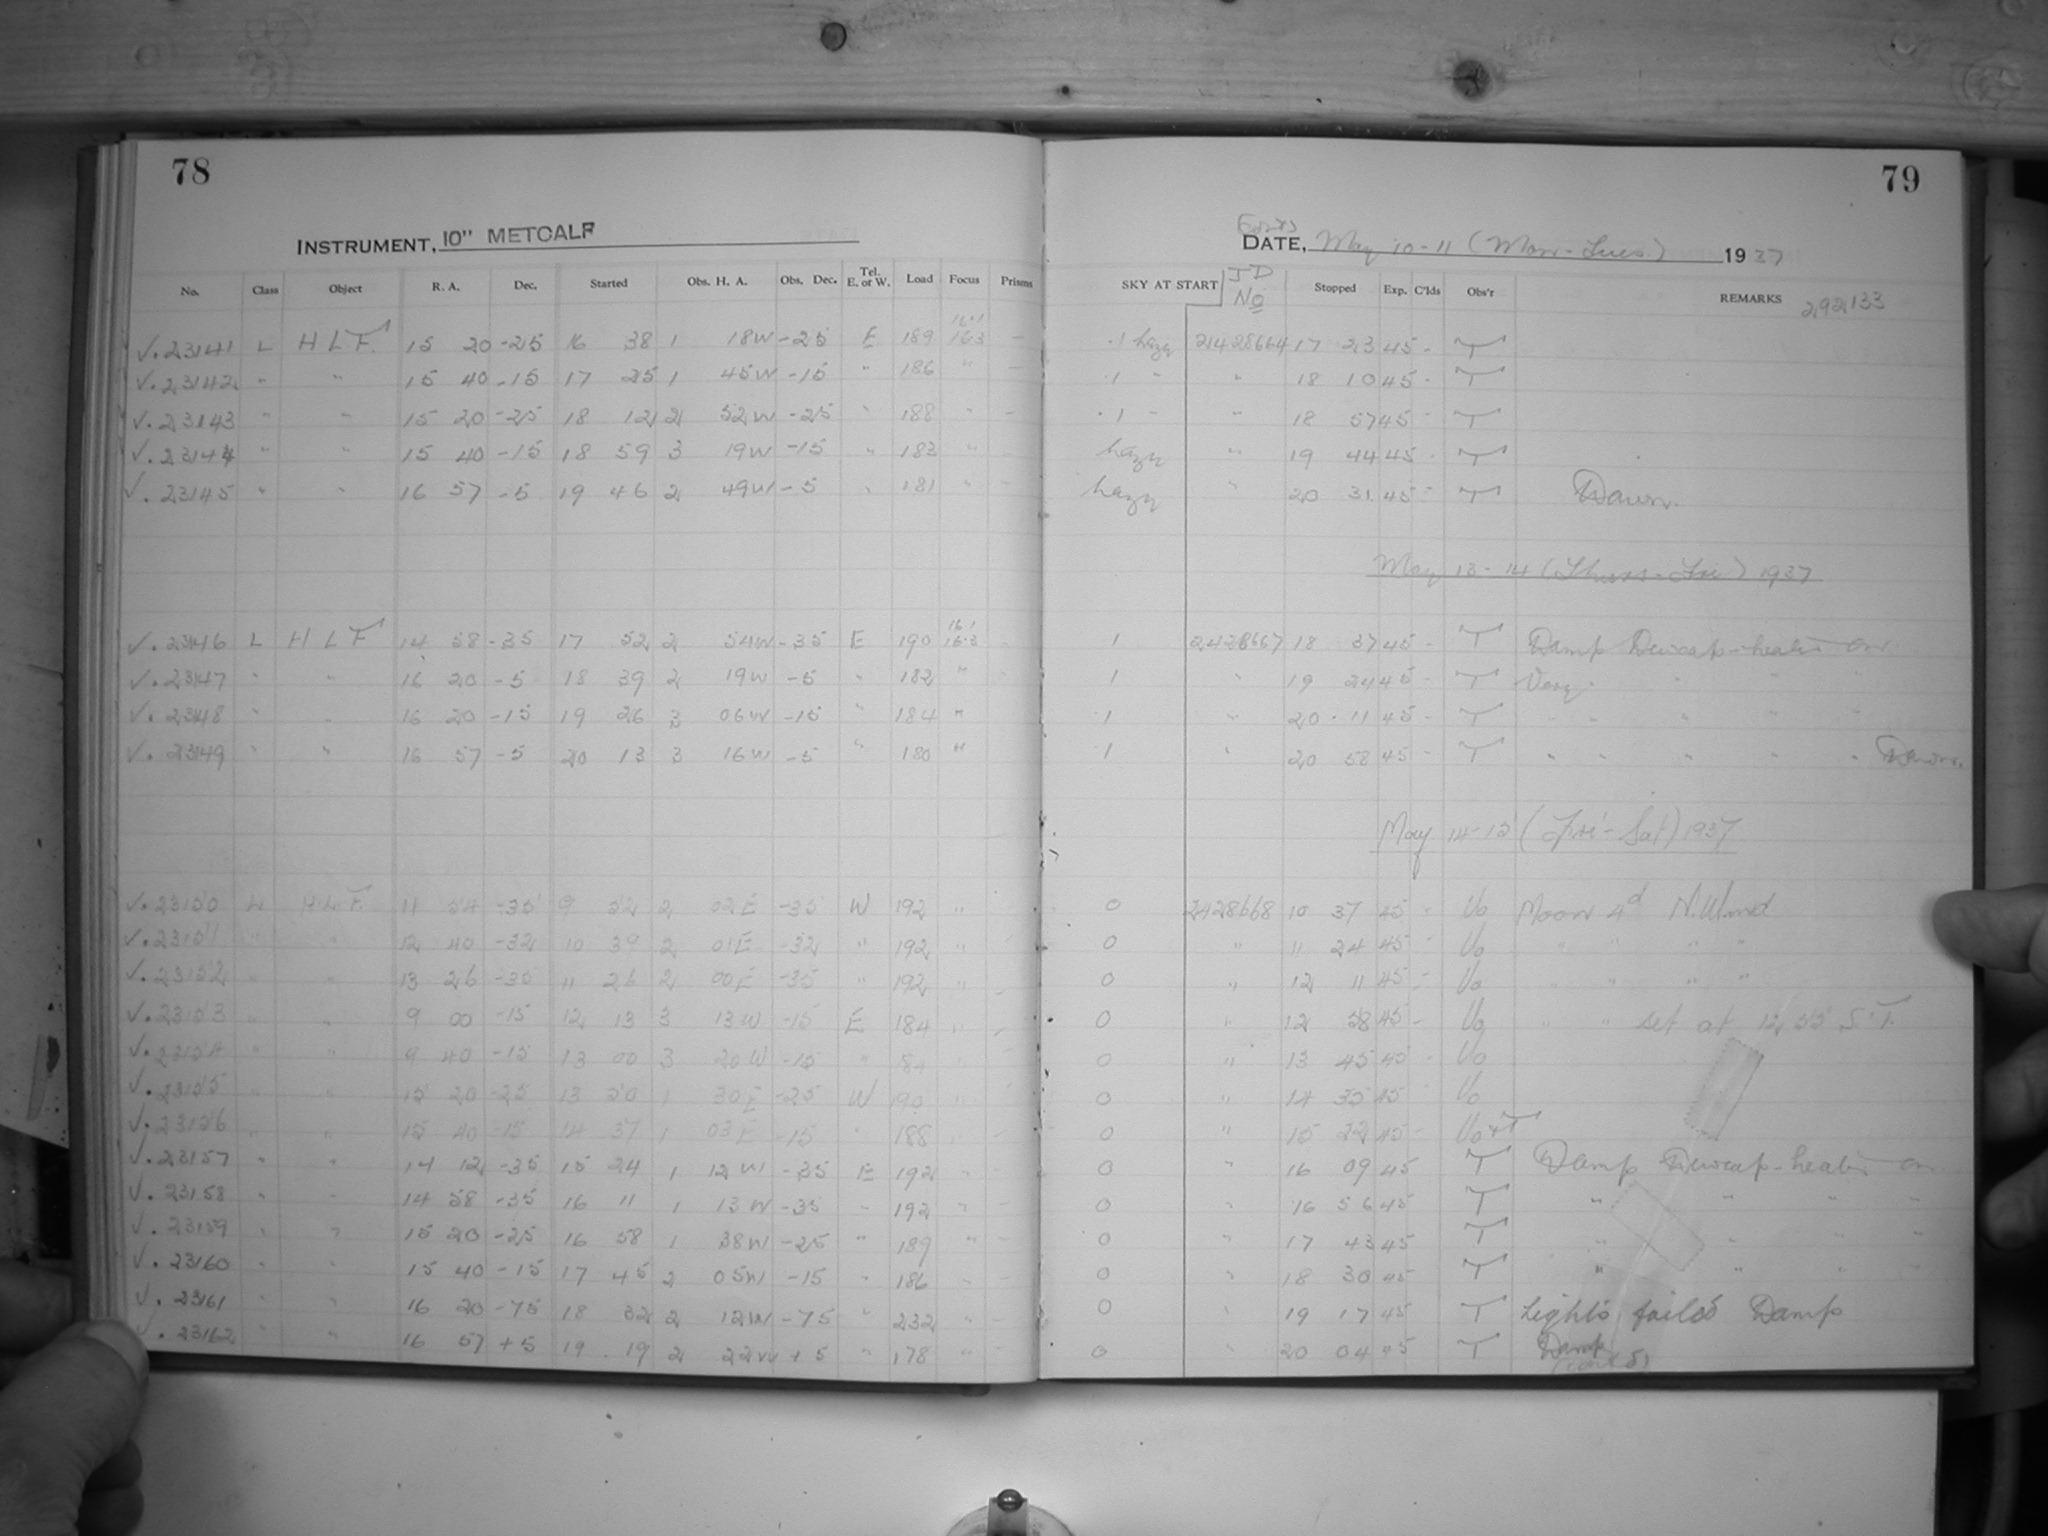 78
INSTRUMENT, 10" METCALF
No. Class Object R. A. Dec. Started Obs. H. A. Obs. Dec. Tel. E. or W. Load Focus Prisms
16.1
√. 23141 L H L F. 15 20 -25 16 38 1 18W -25 E 189 16.3 —
√. 23142 " " 15 40 -15 17 25 1 45W -15 " 186 " —
√. 23143 " " 15 20 -25 18 12 2 52W -25 " 188 " —
√. 23144 " " 15 40 -15 18 59 3 19W -15 " 183 " —
√. 23145 " " 16 57 -5 19 46 2 49W -5 " 181 " —
16.1
√. 23146 L H L F 14 58 -35 17 52 2 54W -35 E 190 16.3
√. 23147 " " 16 20 -5 18 39 2 19W -5 " 182 "
√. 23148 " " 16 20 -15 19 26 3 06W -15 " 184 "
√. 23149 " " 16 57 -5 20 13 3 16W -5 " 180 "
√. 23150 L H L F. 11 54 -35 9 52 2 02E -35 W 192 "
√. 23151 " " 12 40 -32 10 39 2 01E -32 " 192 "
√. 23152 " " 13 26 -35 11 26 2 00E -35 " 192 "
√. 23153 " " 9 00 -15 12 13 3 13W -15 E 184 "
√. 23154 " " 9 40 -15 13 00 3 20W -15 " 84 "
√. 23155 " " 15 20 -25 13 50 1 30E -25 W 190 "
√. 23156 " " 15 40 -15 14 37 1 03E -15 " 188 "
√. 23157 " " 14 12 -35 15 24 1 12W -35 E 192 "
√. 23158 " " 14 58 -35 16 11 1 13W -35 " 192 "
√. 23159 " " 15 20 -25 16 58 1 38W -25 " 189 "
√. 23160 " " 15 40 -15 17 45 2 05W -15 " 186 "
√. 23161 " " 16 20 -75 18 32 2 12W -75 " 232 "
√. 23162 " " 16 57 +5 19 19 2 22W +5 " 178 "
79
DATE, May 10-11 (Mon-Tues.) 1937
SKY AT START JD No Stopped Exp. C'lds Obs'r REMARKS 292,133
.1 hazy 2428664 17 23 45 - T
.1 " " 18 10 45 - T
.1 " " 18 57 45 - T
hazy " 19 44 45 - T
hazy " 20 31 45 - T Dawn.
May 13-14 (Thurs-Fri) 1937
1 2428667 18 37 45 - T Damp Dewcap-heater on
1 " 19 24 45 - T Very " " "
.1 " 20 11 45 - T " " " " "
.1 " 20 58 45 - T " " " " " Dawn.
May 14-15 (Fri-Sat) 1937
0 2428668 10 37 45 - Uo Moon 4d N. Wind
0 " 11 24 45 - Uo " " " "
0 " 12 11 45 - Uo " " " "
0 " 12 58 45 - Uo " " set at 12 55 S.T.
0 " 13 45 45 - Uo
0 " 14 35 45 Uo
0 " 15 22 45 - Uo+T
0 " 16 09 45 T Damp Dewcap-heater on
0 " 16 56 45 T " " " "
0 " 17 43 45 T " " " "
0 " 18 30 45 T " " " "
0 " 19 17 45 T Lights failed Damp
0 " 20 04 45 T Damp